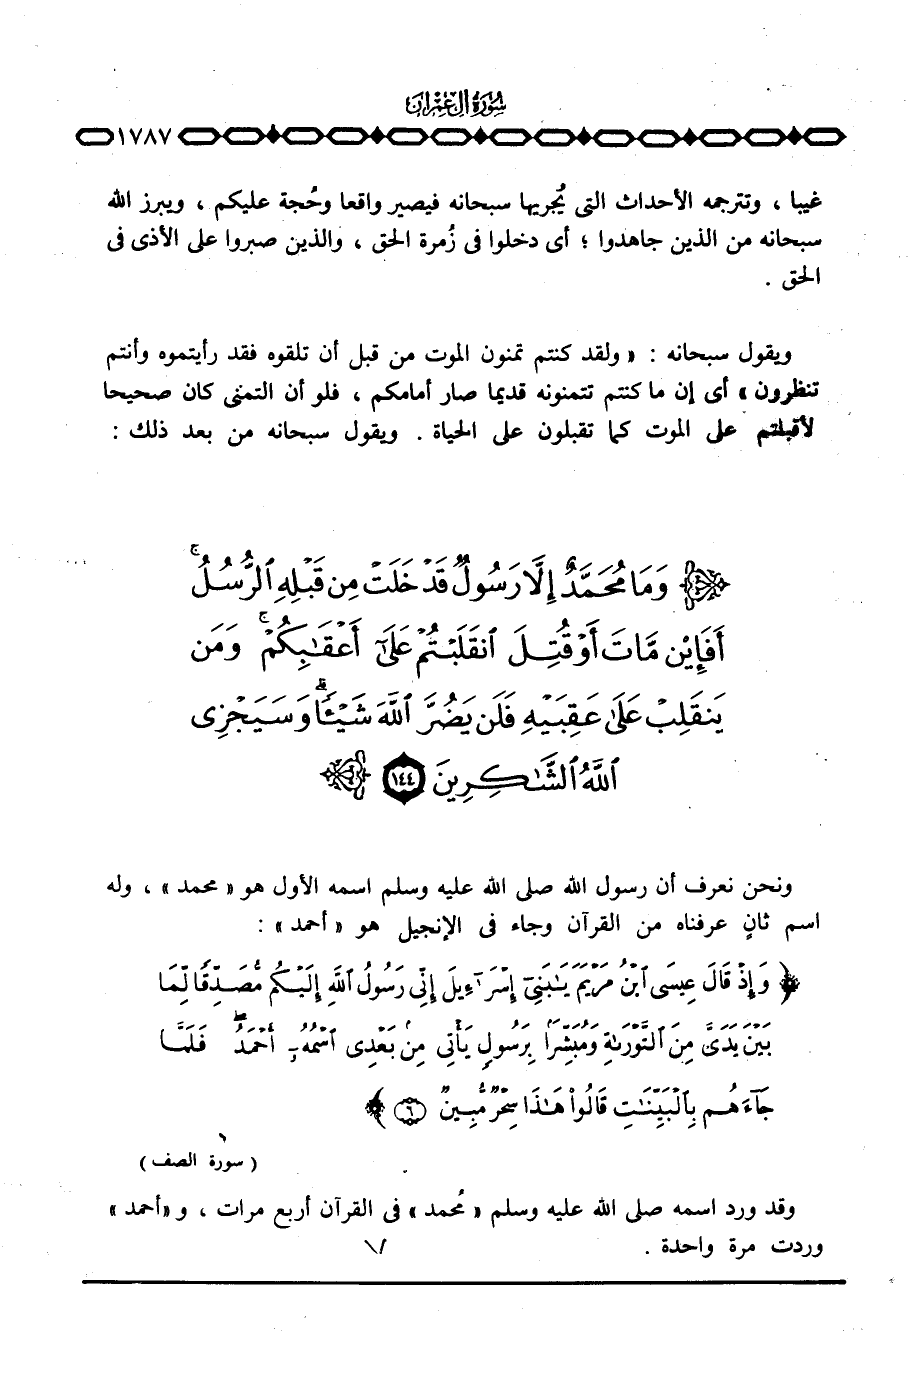 سورة آل عمران
١٧٨٧
غيبا ، وتترجمه الأحداث التى يُجريها سبحانه فيصير واقعا وحُجة عليكم ، ويبرز الله
سبحانه من الذين جاهدوا ؛ أى دخلوا فى زُمرة الحق ، والذين صبروا على الأذى فى
الحق .
ويقول سبحانه : « ولقد كنتم تمنون الموت من قبل أن تلقوه فقد رأيتموه وأنتم
تنظرون » أى إن ما كنتم تتمنونه قديما صار أمامكم ، فلو أن التمنى كان صحيحا
لأقبلتم على الموت كما تقبلون على الحياة . ويقول سبحانه من بعد ذلك :
وَمَا مُحَمَّدٌ إِلَّا رَسُولٌ قَدْ خَلَتْ مِن قَبْلِهِ ٱلرُّسُلُ ۚ
أَفَإِيْن مَّاتَ أَوْ قُتِلَ ٱنقَلَبْتُمْ عَلَىٰٓ أَعْقَٰبِكُمْ ۚ وَمَن
يَنقَلِبْ عَلَىٰ عَقِبَيْهِ فَلَن يَضُرَّ ٱللَّهَ شَيْـًٔا ۗ وَسَيَجْزِى
ٱللَّهُ ٱلشَّٰكِرِينَ ١٤٤
ونحن نعرف أن رسول الله صلى الله عليه وسلم اسمه الأول هو « محمد » ، وله
اسم ثانٍ عرفناه من القرآن وجاء فى الإنجيل هو « أحمد » :
﴿ وَإِذْ قَالَ عِيسَى ٱبْنُ مَرْيَمَ يَٰبَنِىٓ إِسْرَٰٓءِيلَ إِنِّى رَسُولُ ٱللَّهِ إِلَيْكُم مُّصَدِّقًا لِّمَا
بَيْنَ يَدَىَّ مِنَ ٱلتَّوْرَىٰةِ وَمُبَشِّرًۢا بِرَسُولٍ يَأْتِى مِنۢ بَعْدِى ٱسْمُهُۥٓ أَحْمَدُ ۖ فَلَمَّا
جَآءَهُم بِٱلْبَيِّنَٰتِ قَالُوا۟ هَٰذَا سِحْرٌ مُّبِينٌ ٦ ﴾
( سورة الصف )
وقد ورد اسمه صلى الله عليه وسلم « مُحمد » فى القرآن أربع مرات ، و«أحمد »
وردت مرة واحدة .